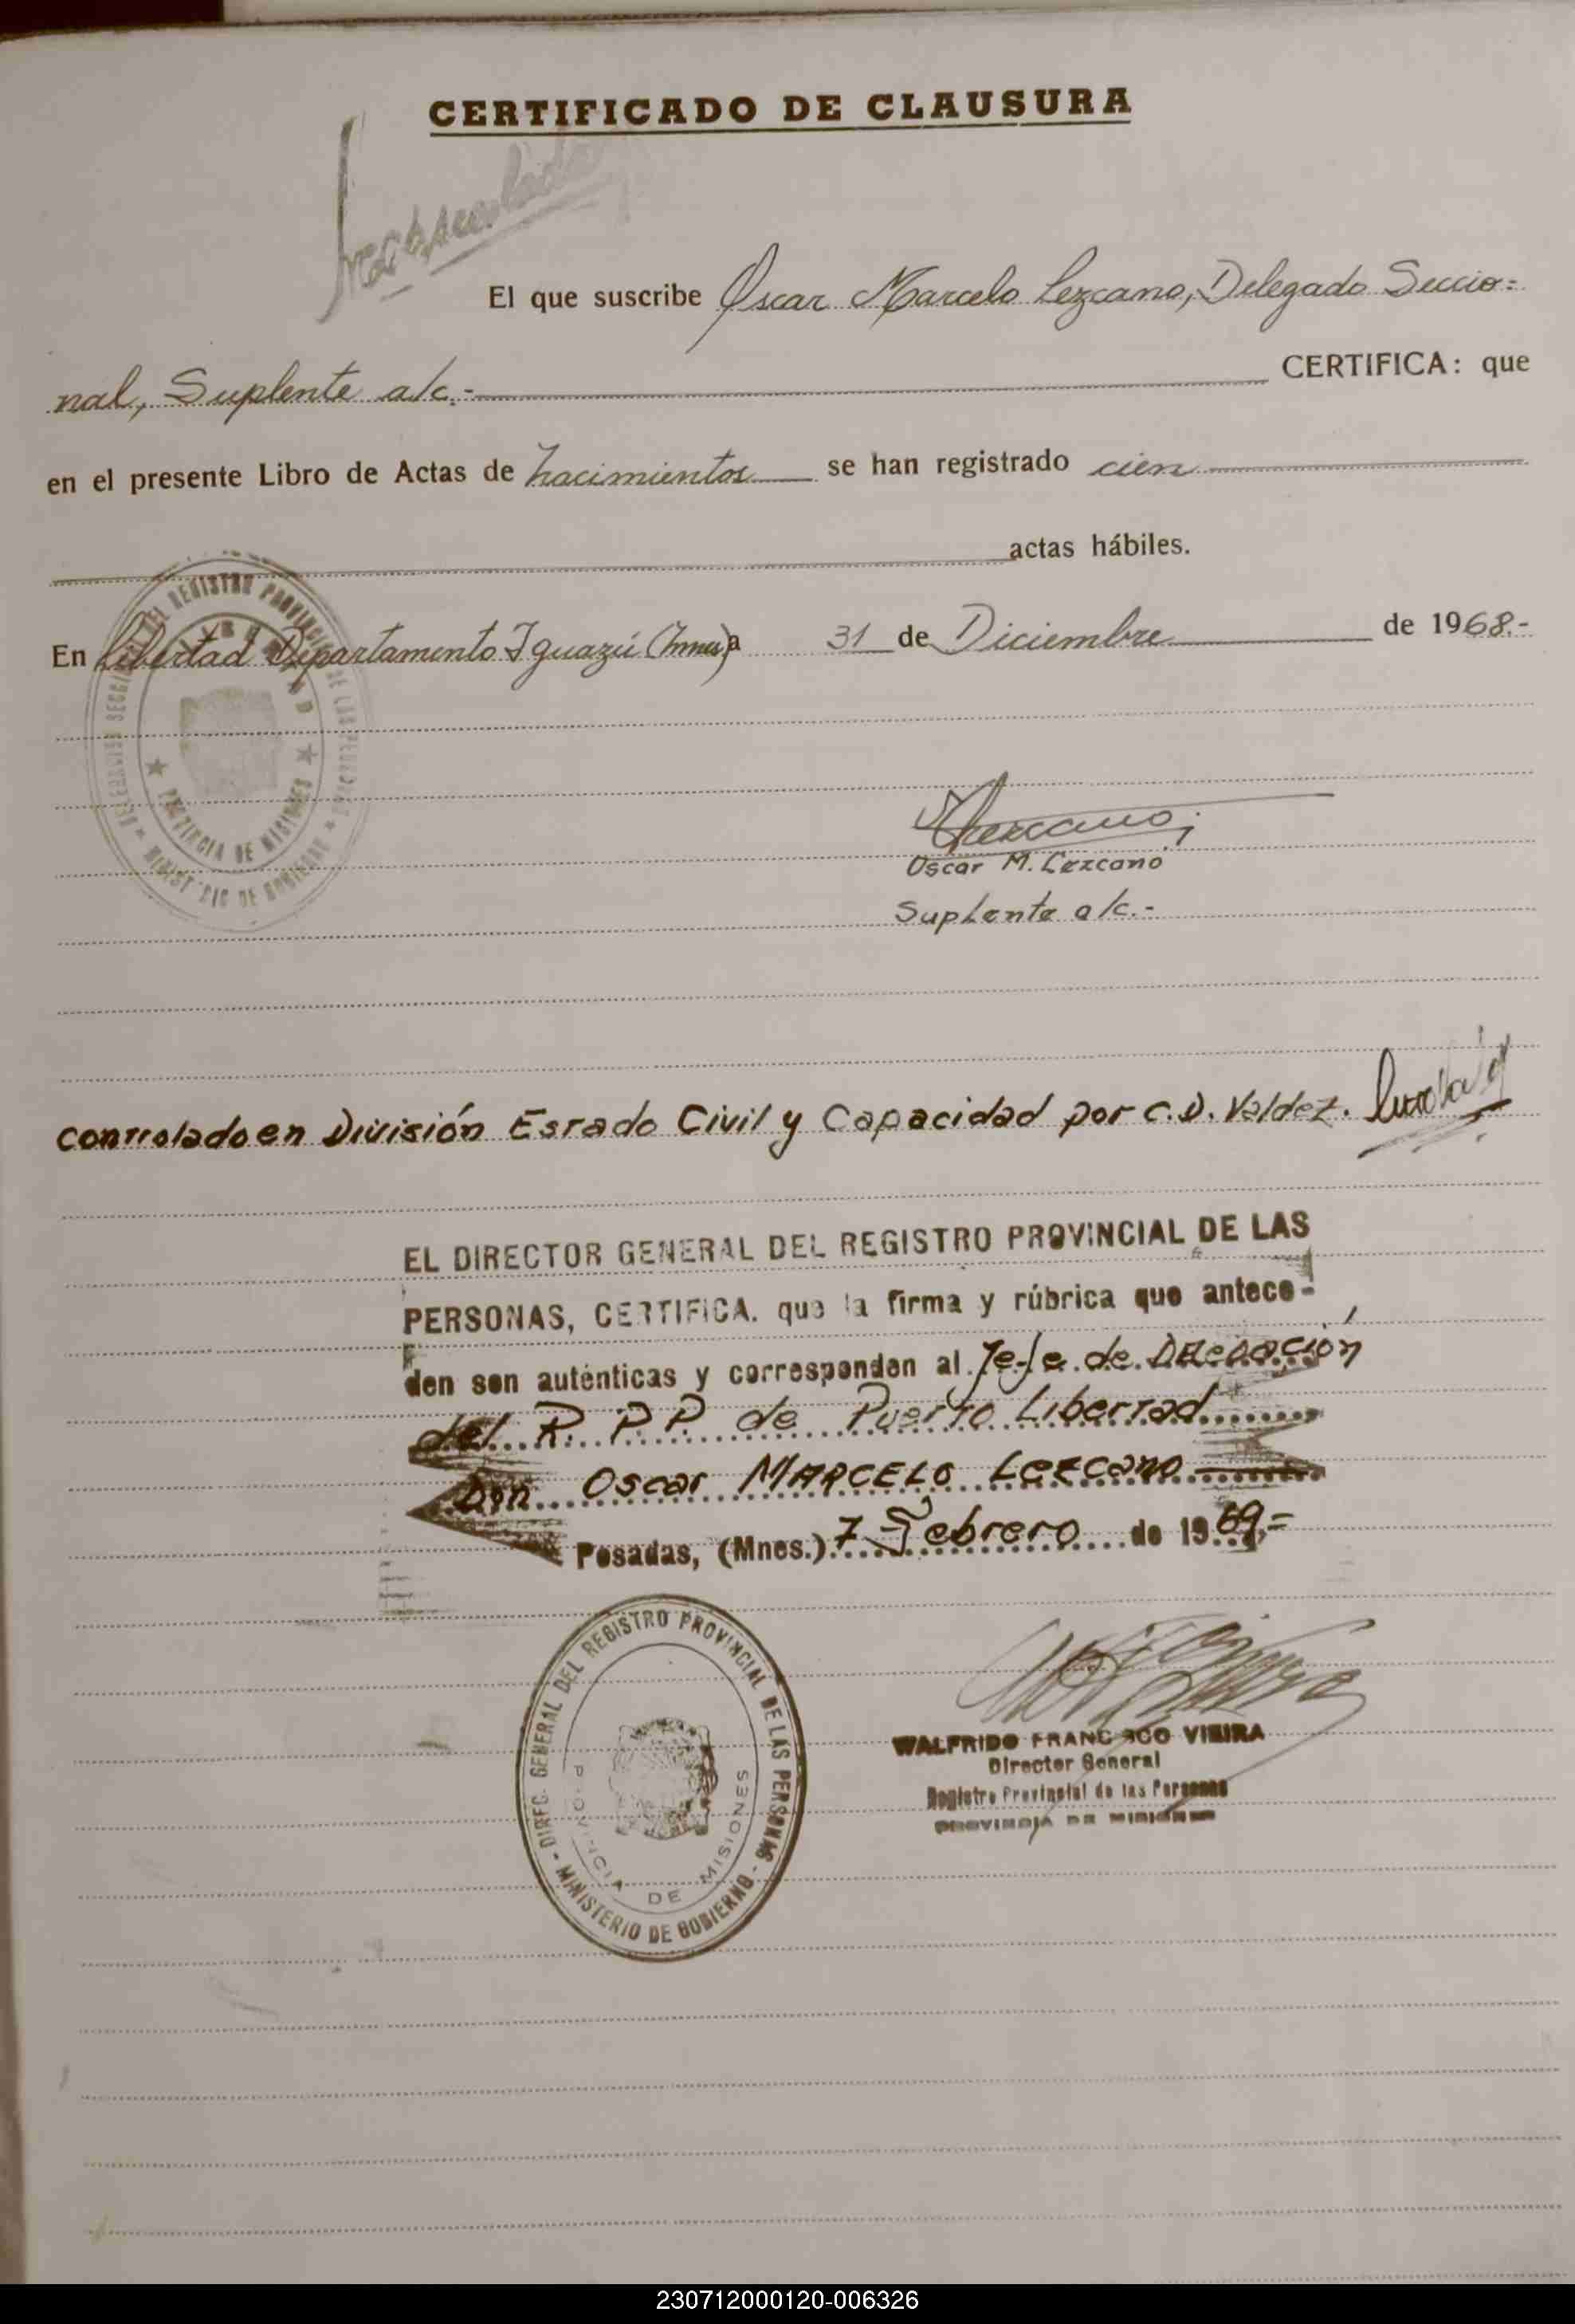 CERTIFICADO DE CLAUSURA
El que suscribe Oscar Marcelo Lezcano, Delegado Seccio=
nal, Suplente a/c.- CERTIFICA: que
en el presente Libro de Actas de Nacimientos se han registrado cien
actas hábiles.
En Libertad Departamento Iguazú (Mnes) a 31 de Diciembre de 1968.-
REGISTRO PROVINCIAL DE LAS PERSONAS
PROVINCIA DE MISIONES
MINISTERIO DE GOBIERNO
Lezcano
Oscar M. Lezcano
Suplente a/c.-
Controlado en División Estado Civil y Capacidad por C.D. Valdez.
EL DIRECTOR GENERAL DEL REGISTRO PROVINCIAL DE LAS
PERSONAS, CERTIFICA. que la firma y rúbrica que antece-
den son auténticas y corresponden al Jefe de Delegación
del R. P. P. de Puerto Libertad
Don Oscar MARCELO Lezcano
Posadas, (Mnes.) 7 Febrero de 1969,=
DIREC. GENERAL DEL REGISTRO PROVINCIAL DE LAS PERSONAS - MINISTERIO DE GOBIERNO -
PROVINCIA DE MISIONES
WALFRIDO FRANCISCO VIEIRA
Director General
Registro Provincial de las Personas
PROVINCIA DE MISIONES
230712000120-006326